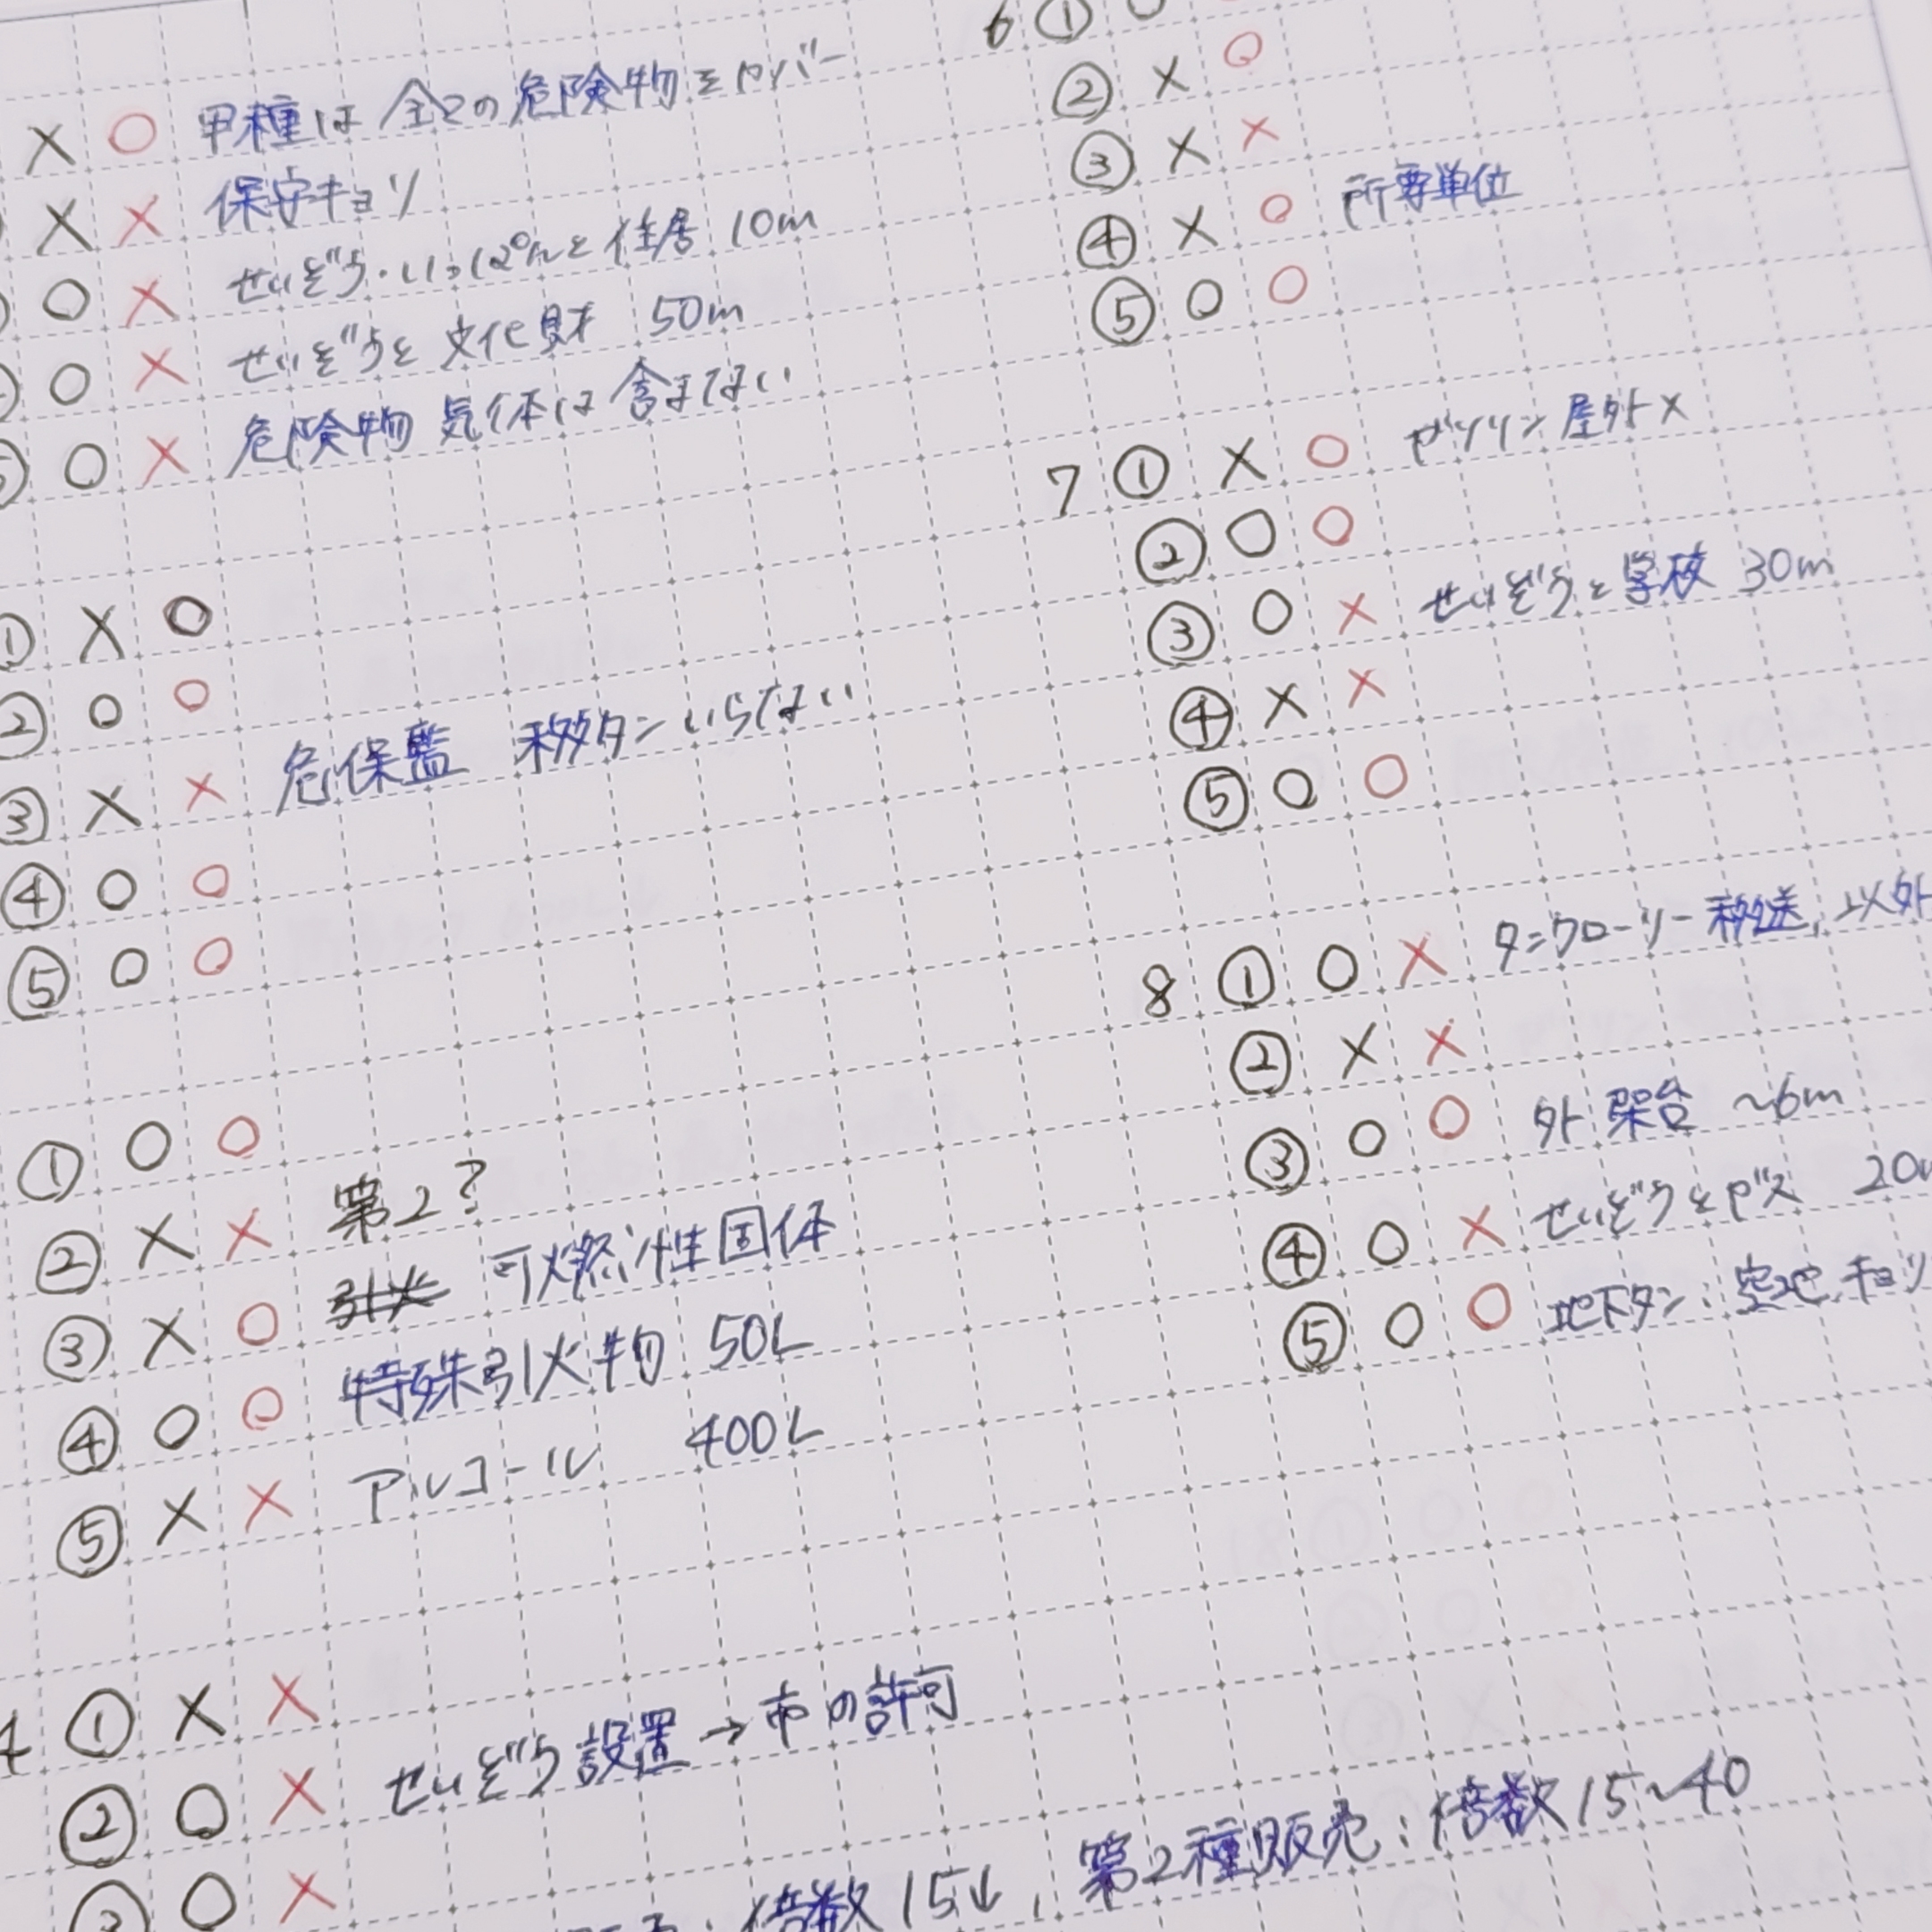 × ○ 甲種は全ての危険物をカバー
× × 保安キョリ
○ × せいぞう・いっぱんと住居 10m
○ × せいぞうと文化財 50m
○ × 危険物 気体は含まない
① × ○
② ○ ○
③ × × 危保監 移タンいらない
④ ○ ○
⑤ ○ ○
① ○ ○
② × × 第2?
③ × ○ 可燃性固体
④ ○ ○ 特殊引火物 50L
⑤ × × アルコール 400L
4 ① × ×
② ○ × せいぞう設置→市の許可
③ ○ ×
:倍数15↓, 第2種販売:倍数15~40
6 ①
② × ○
③ × ×
④ × ○ 所要単位
⑤ ○ ○
7 ① × ○ ガソリン屋外×
② ○ ○
③ ○ × せいぞうと学校 30m
④ × ×
⑤ ○ ○
8 ① ○ × タンクローリー移送, 以外
② × ×
③ ○ ○ 外 架台 ~6m
④ ○ × せいぞうとガス 20m
⑤ ○ ○ 地下タン, 空地, キョリ